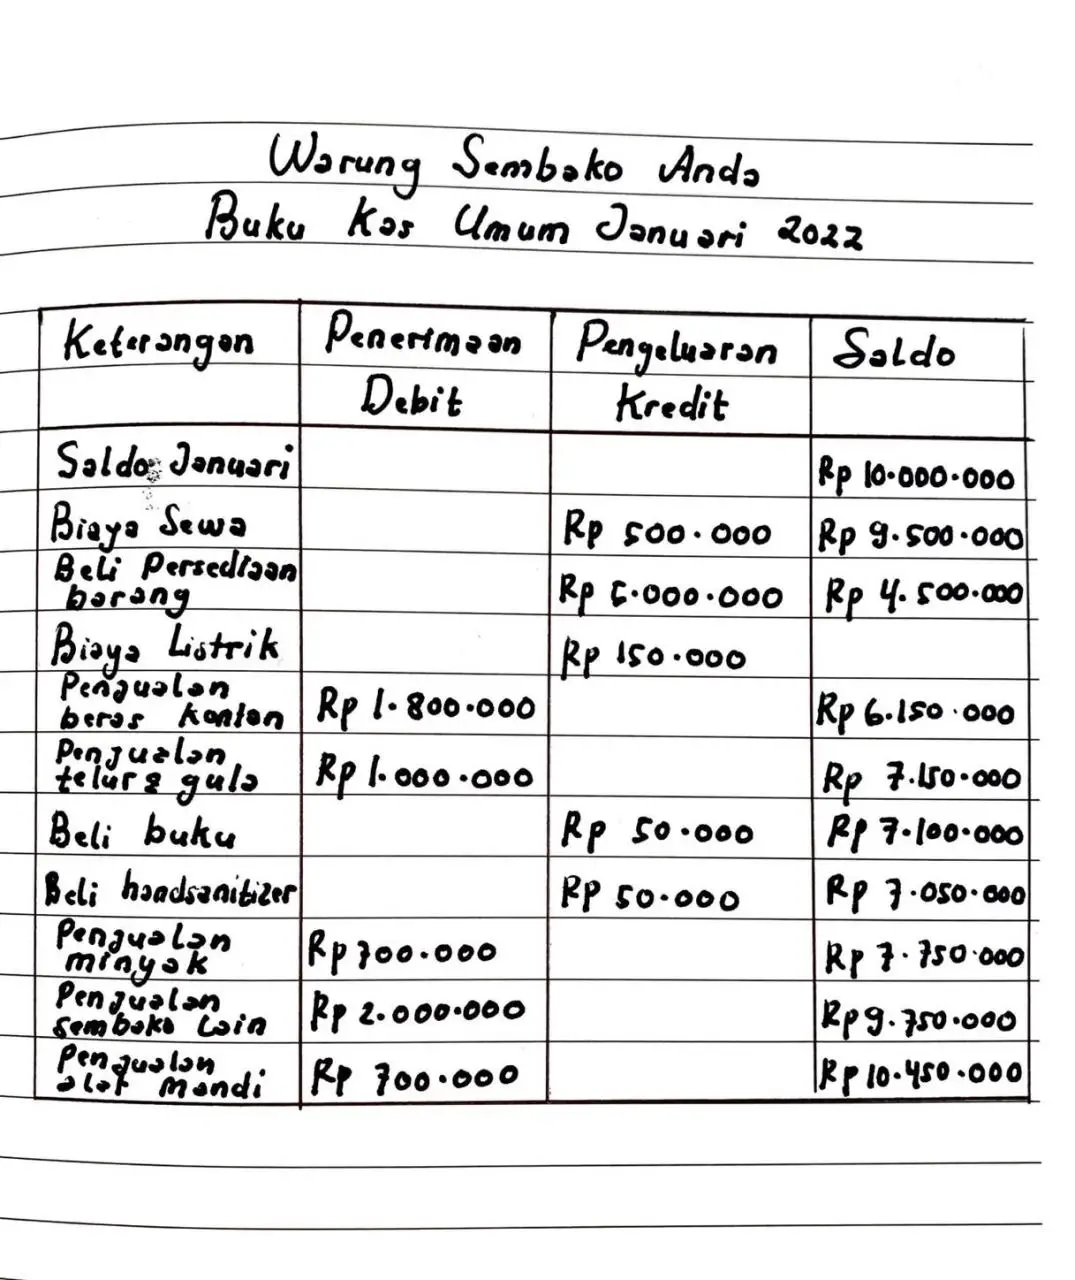 Warung Sembako Anda
Buku Kas Umum Januari 2022
Keterangan Penerimaan Pengeluaran Saldo
Debit Kredit
Saldo Januari Rp 10.000.000
Biaya Sewa Rp 500.000 Rp 9.500.000
Beli Persediaan
barang Rp 5.000.000 Rp 4.500.000
Biaya Listrik Rp 150.000
Penjualan
beras kontan Rp 1.800.000 Rp 6.150.000
Penjualan
telur & gula Rp 1.000.000 Rp 7.150.000
Beli buku Rp 50.000 Rp 7.100.000
Beli handsanitizer Rp 50.000 Rp 7.050.000
Penjualan
minyak Rp 700.000 Rp 7.750.000
Penjualan
sembako lain Rp 2.000.000 Rp 9.750.000
Penjualan
alat mandi Rp 700.000 Rp 10.450.000